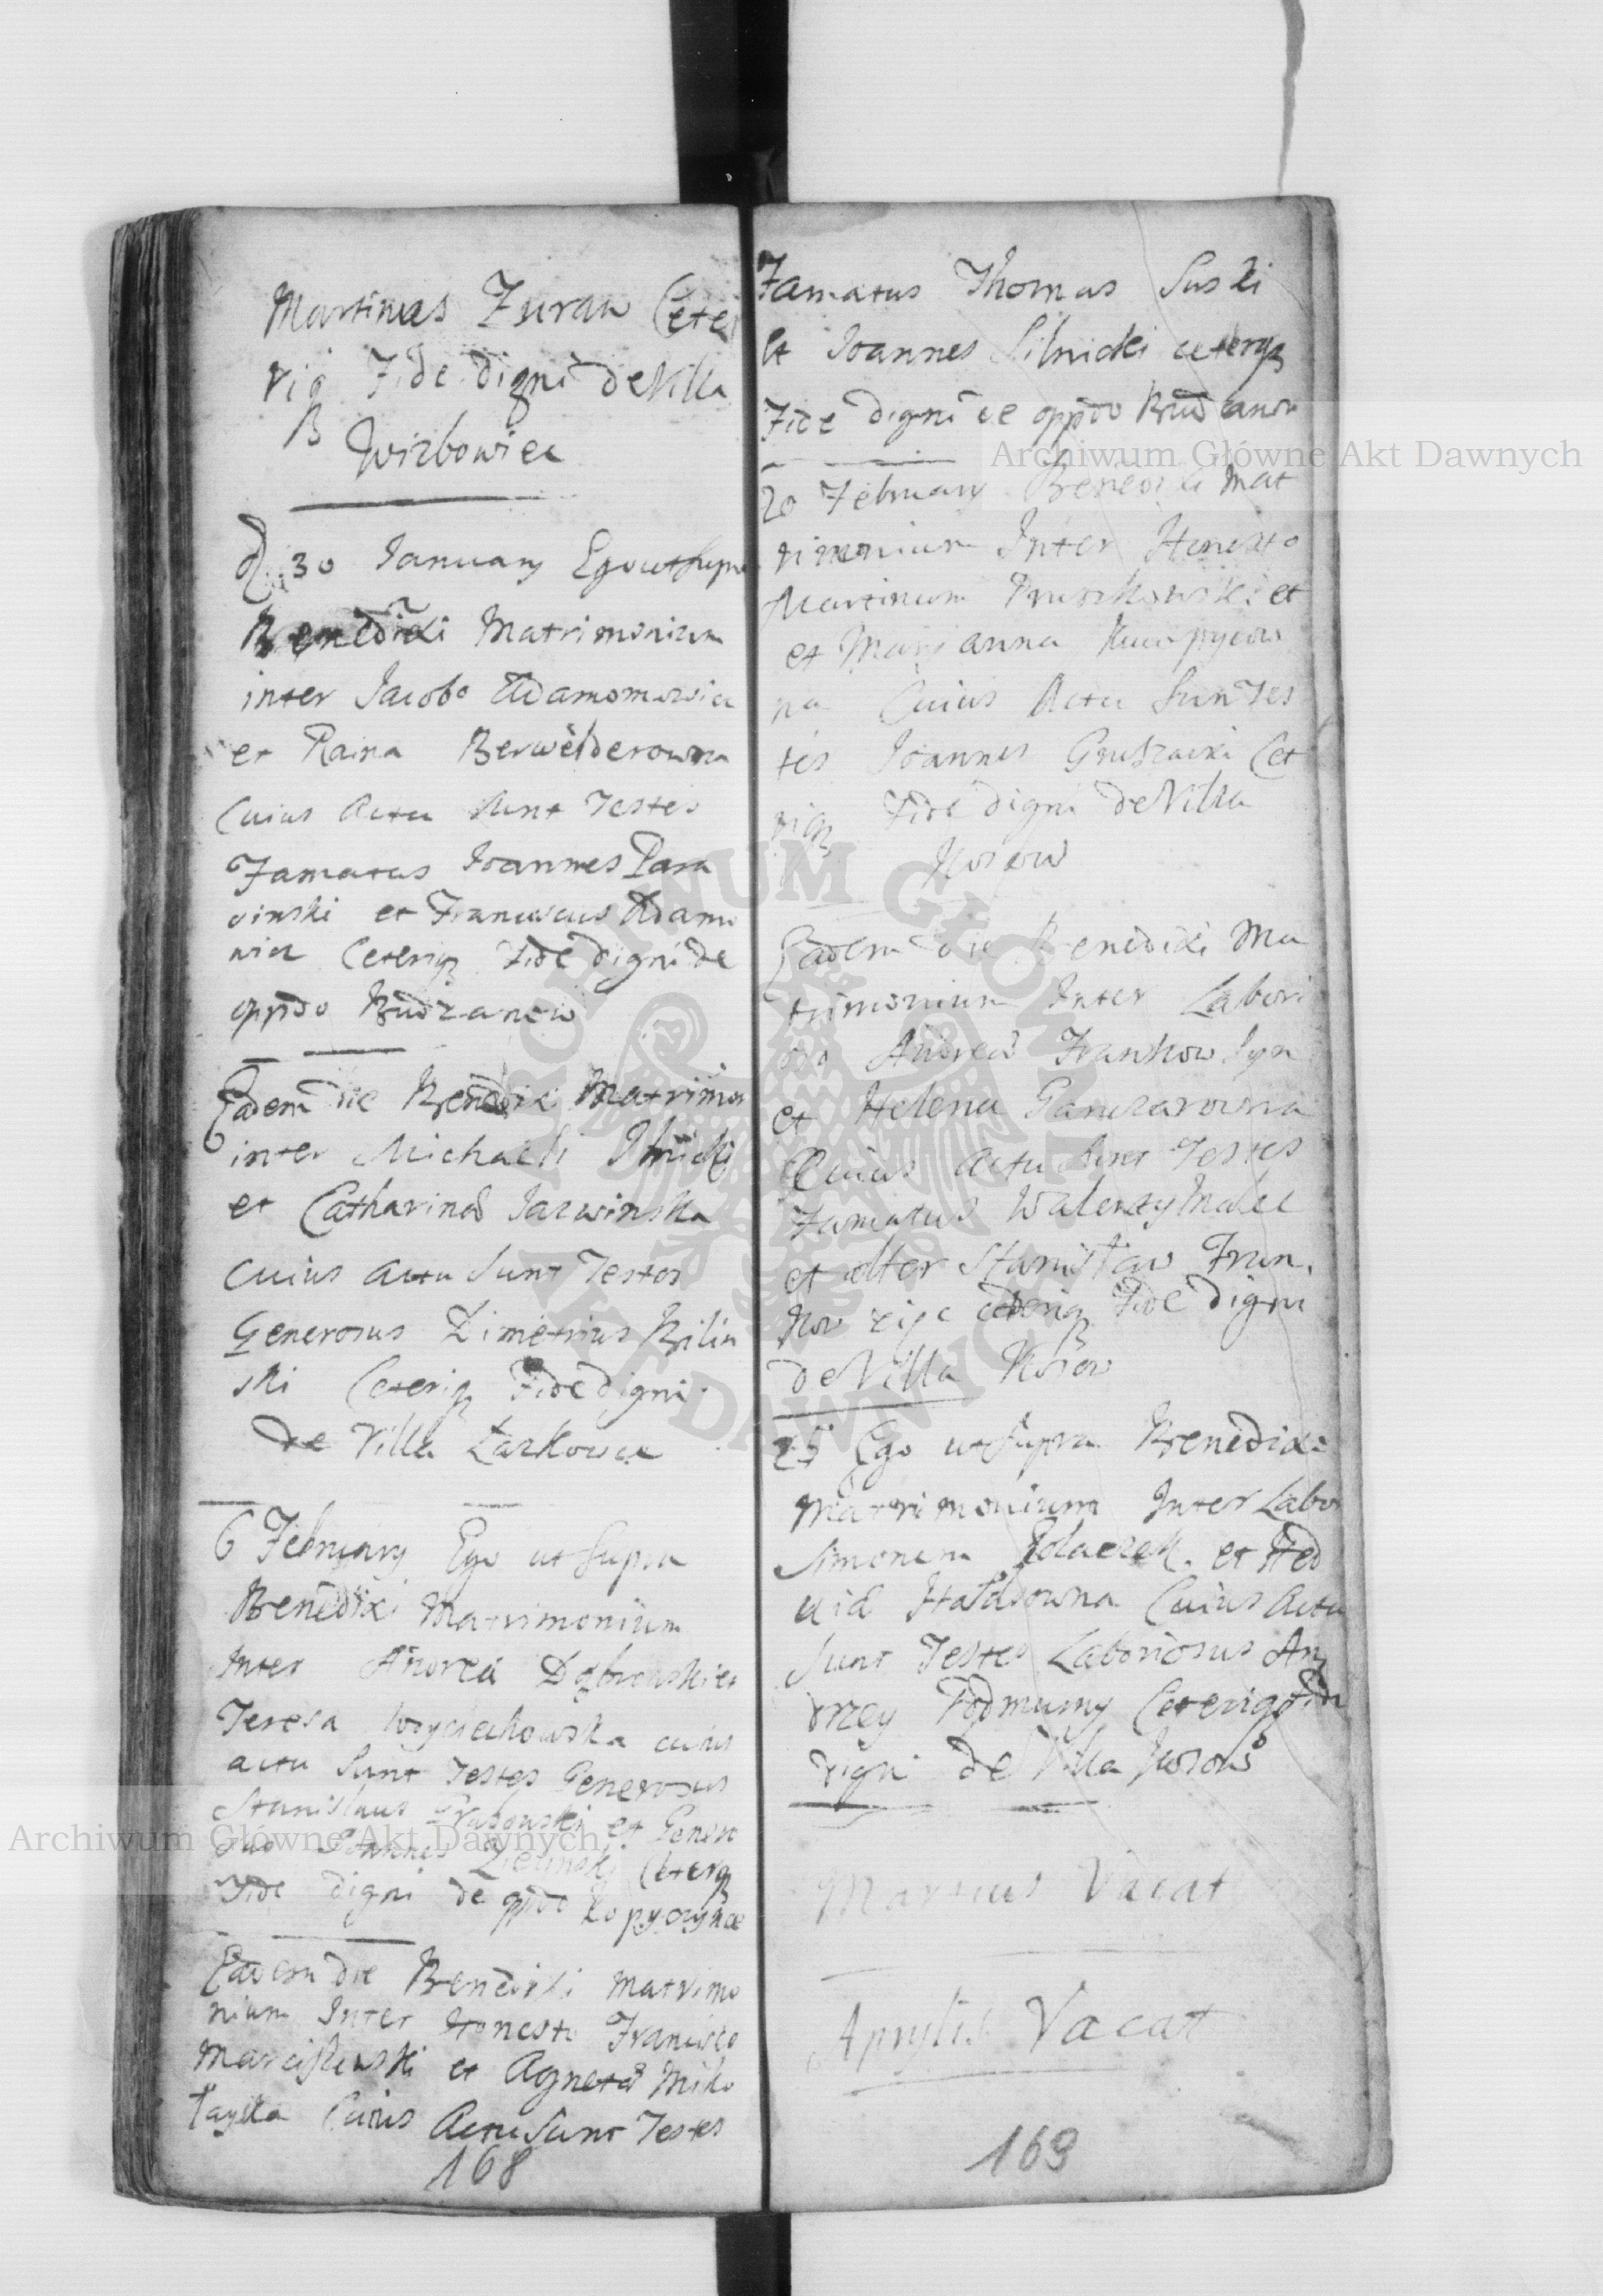 Martinus Zuraw Cete
riq Fide digni de Villa
Wirzbowiec
d. 30 January Ego ut supra
Benedixi Matrimonium
inter Jacobo Adamomowicz
et Raina Berwelderowna
Cuius Actu sunt Testes
Famatus Joannes Para
vinski et Franciscus Adamo
wicz Ceteriq Fide digni de
oppido Budzanow
Eadem die Benedixi Matrimon
inter Michaeli
et Catharina Jarwinska
cuius actu sunt Testes
Generosus Dimetrius Bilin
ski Ceteriq Fide digni
de Villa Laskowce
6 February Ego ut supra
Benedixi Matrimonium
Inter Andrea Dąbrowski et
Teresa Woyciechowska cuius
actu sunt Testes Generosus
Stanislaus Grabowski et Genero
sus Joannes Zielinski Ceteriq
Fide digni de oppido Kopyczynce
Eadem die Benedixi Matrimo
nium Inter Honesto Francisco
Marciszewski et Agneta Miko
łayska Cuius Actu sunt Testes
168
Famatus Thomas Suski
et Joannes Silnicki ceteriq
Fide digni de oppido Budzanow
20 February Benedixi Mat
rimonium Inter Honesto
Martinum Pruszkowski et
et Maryanna
na Cuius Actu sun Tes
tes Joannes Gruszecki Cet
riq Fide digni de Villa
Kosow
Eadem die Benedixi Ma
trimonium Inter Labori
oso Andrea Frankow Syn
et Helena Ganczarowna
Cuius Actu sunt Testes
Famatus Walenty Malec
et alter Stanisław Fran
kow ceteriq Fide digni
de Villa Kosow
25 Ego ut supra Benedixi
Matrimonium Inter Labor
Simonem et Hed
wid Cuius Actu
sunt Testes Laboriosus An
drzey Podmurny Ceteriq Fide
digni de Villa Kosow
Martius Vacat
Aprilis Vacat
169
Archiwum Główne Akt Dawnych
Archiwum Główne Akt Dawnych
ARCHIWUM GŁÓWNE
AKT DAWNYCH